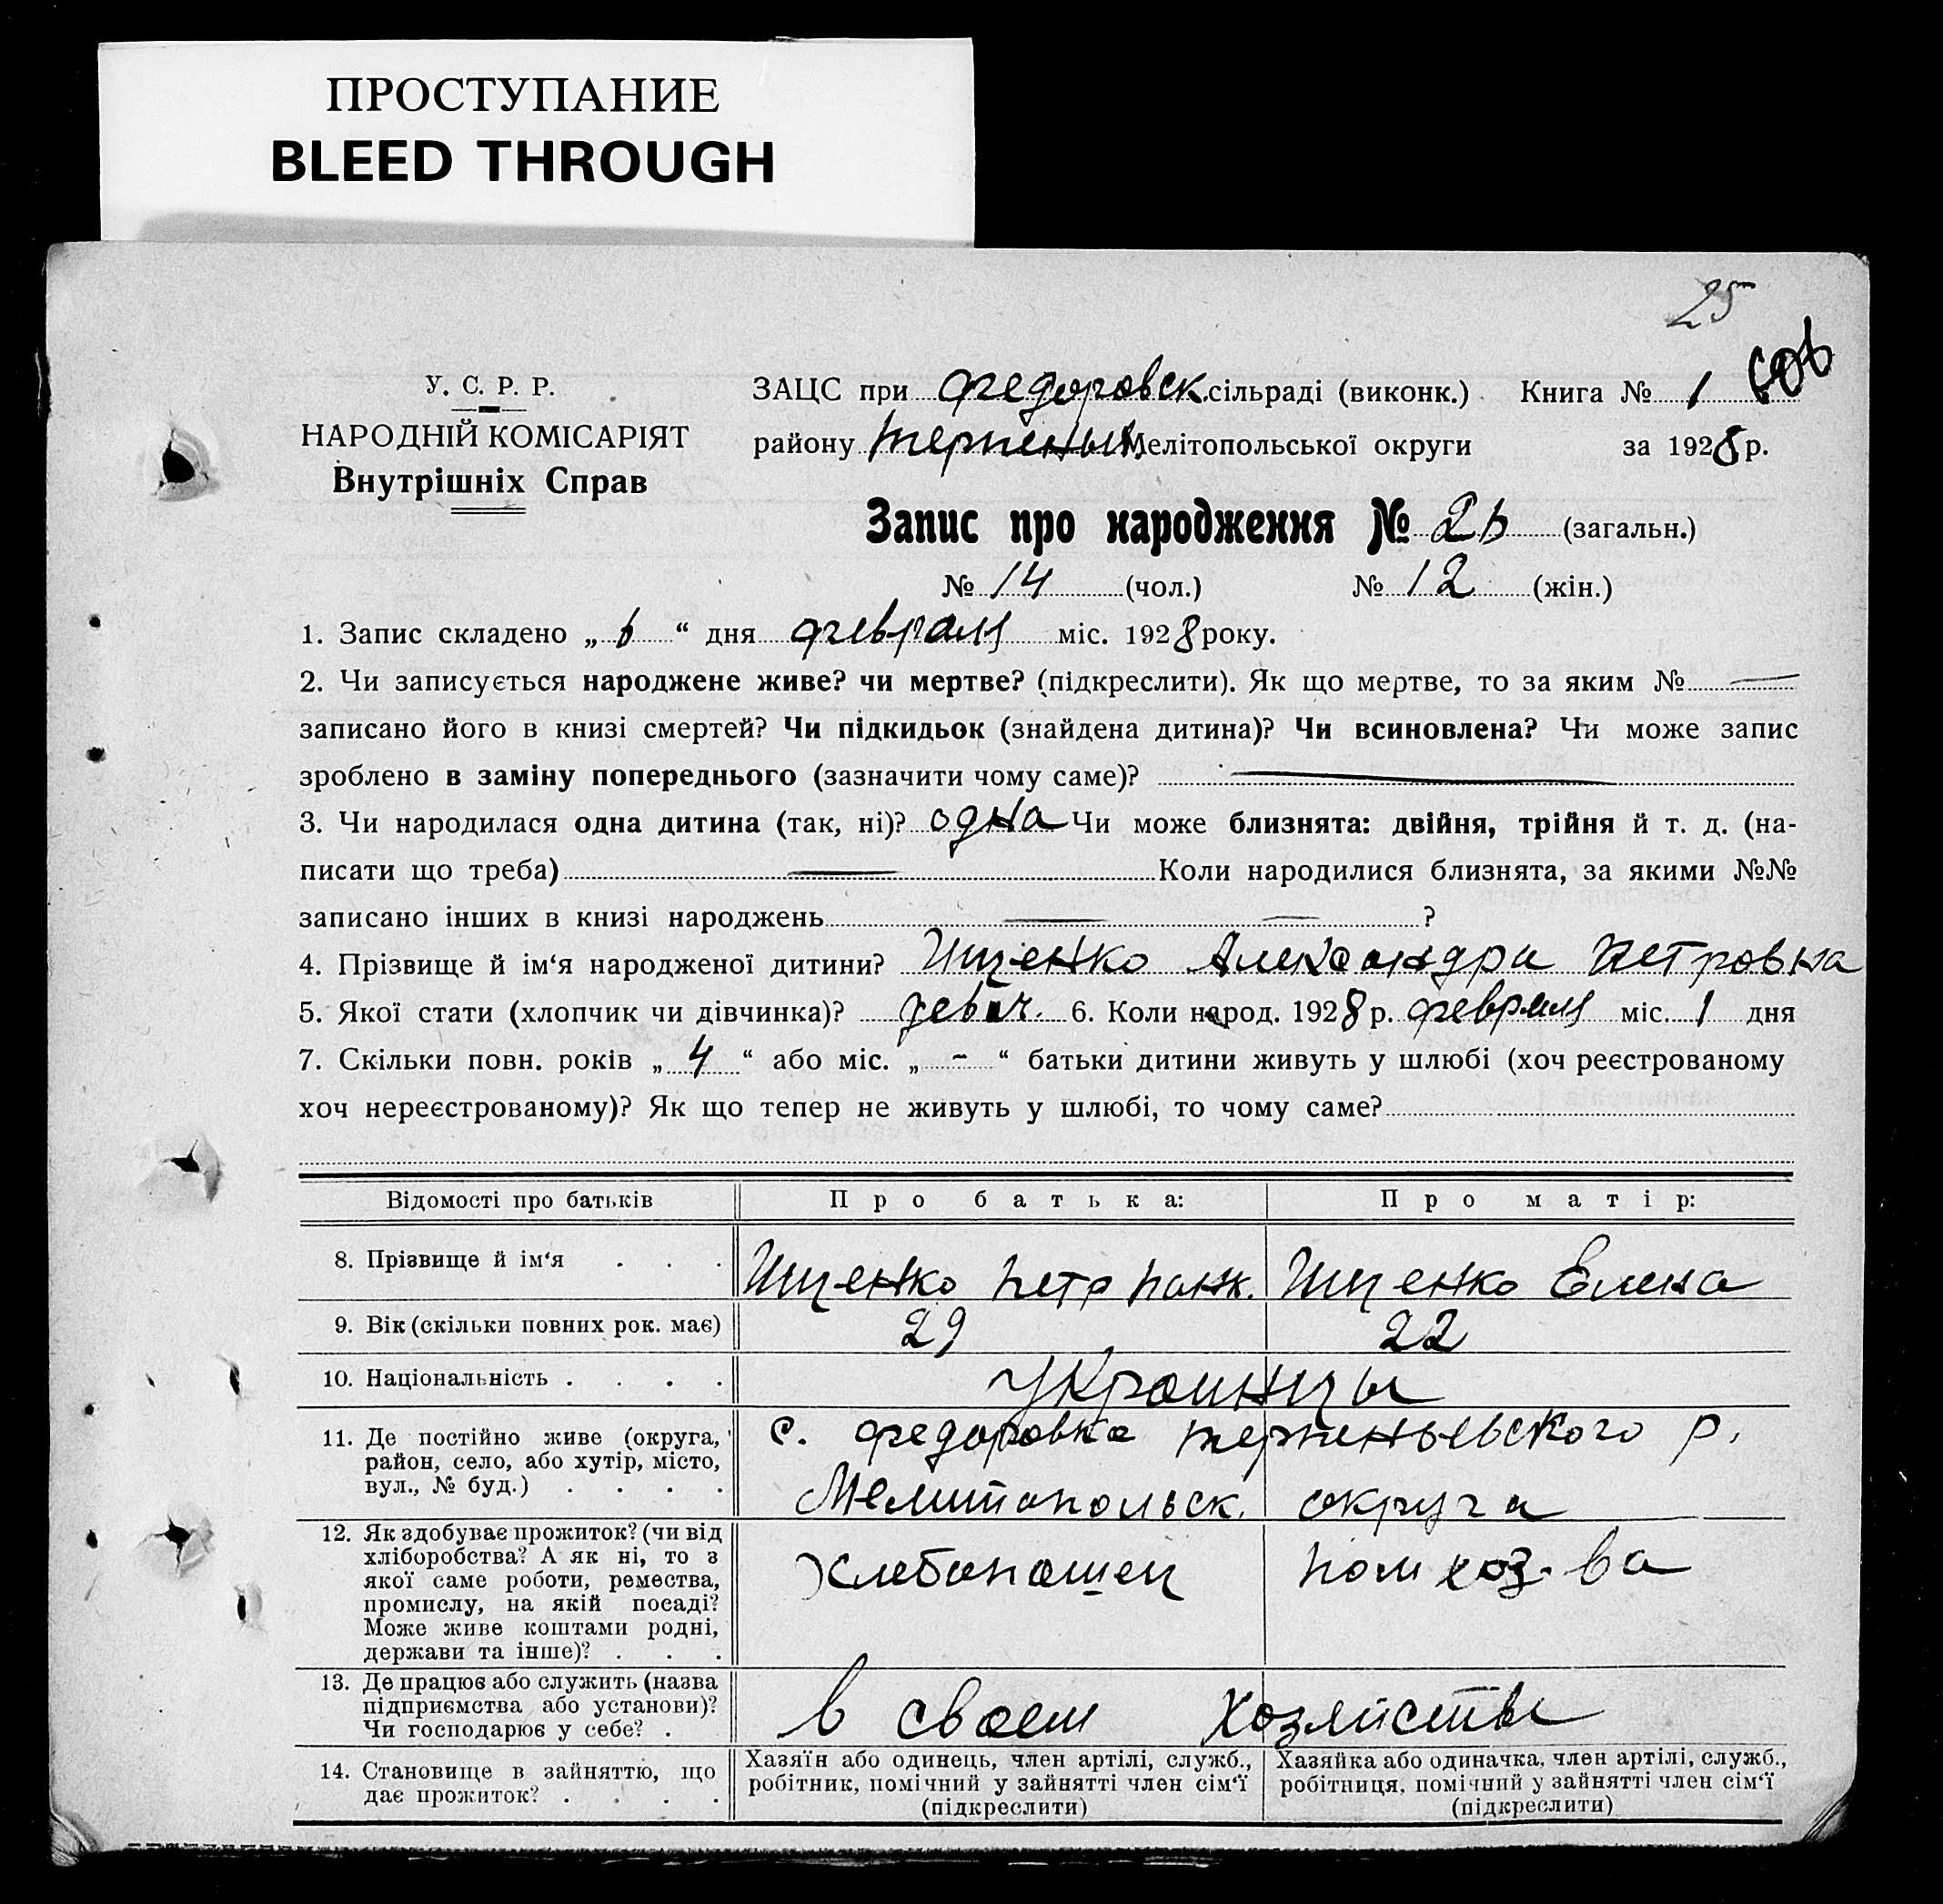 ПРОСТУПАНИЕ
BLEED THROUGH
25
У. С. Р. Р.
НАРОДНІЙ КОМІСАРІЯТ
Внутрішніх Справ
ЗАЦС при Федоровск. сільраді (виконк.) Книга № 1
району Терпеньи Мелітопольської округи за 1928 р.
Запис про народження № (загальн.)
№ 14 (чол.) № 12 (жін.)
1. Запис складено „ 6 “ дня февраля міс. 1928 року.
2. Чи записується народжене живе? чи мертве? (підкреслити). Як що мертве, то за яким № —
записано його в книзі смертей? Чи підкидьок (знайдена дитина)? Чи всиновлена? Чи може запис
зроблено в заміну попереднього (зазначити чому саме)? —
3. Чи народилася одна дитина (так, ні)? одна Чи може близнята: двійня, трійня й т. д. (на-
писати що треба) — Коли народилися близнята, за якими №№
записано інших в книзі народжень — — ?
4. Прізвище й ім‘я народженої дитини? Ищенко Александра Петровна
5. Якої стати (хлопчик чи дівчинка)? девоч. 6. Коли народ. 1928 р. февраля міс. 1 дня
7. Скільки повн. років „ 4 “ або міс. „ - “ батьки дитини живуть у шлюбі (хоч реєстрованому
хоч нереєстрованому)? Як що тепер не живуть у шлюбі, то чому саме?
Відомості про батьків Про батька: Про матір:
8. Прізвище й ім‘я . . . Ищенко Петр Ищенко Елена
9. Вік (скільки повних рок. має) 29 22
10. Національність . . . . Украинцы
11. Де постійно живе (округа, район, село, або хутір, місто, вул., № буд.) . . . .
с. Федоровка Терпеньевского р.
Мелитопольск. округа
12. Як здобуває прожиток? (чи від хліборобства? А як ні, то з якої саме роботи, ремества, промислу, на якій посаді? Може живе коштами родні, держави та інше)? . . .
Хлебопашец Пом хоз-ва
13. Де працює або служить (назва підприємства або установи)? Чи господарює у себе? .
в своем хозяйстве
14. Становище в зайняттю, що дає прожиток? . . . .
Хазяїн або одинець, член артілі, служб., робітник, помічний у зайнятті член сім‘ї (підкреслити)
Хазяйка або одиначка, член артілі, служб., робітниця, помічний у зайнятті член сім‘ї (підкреслити)